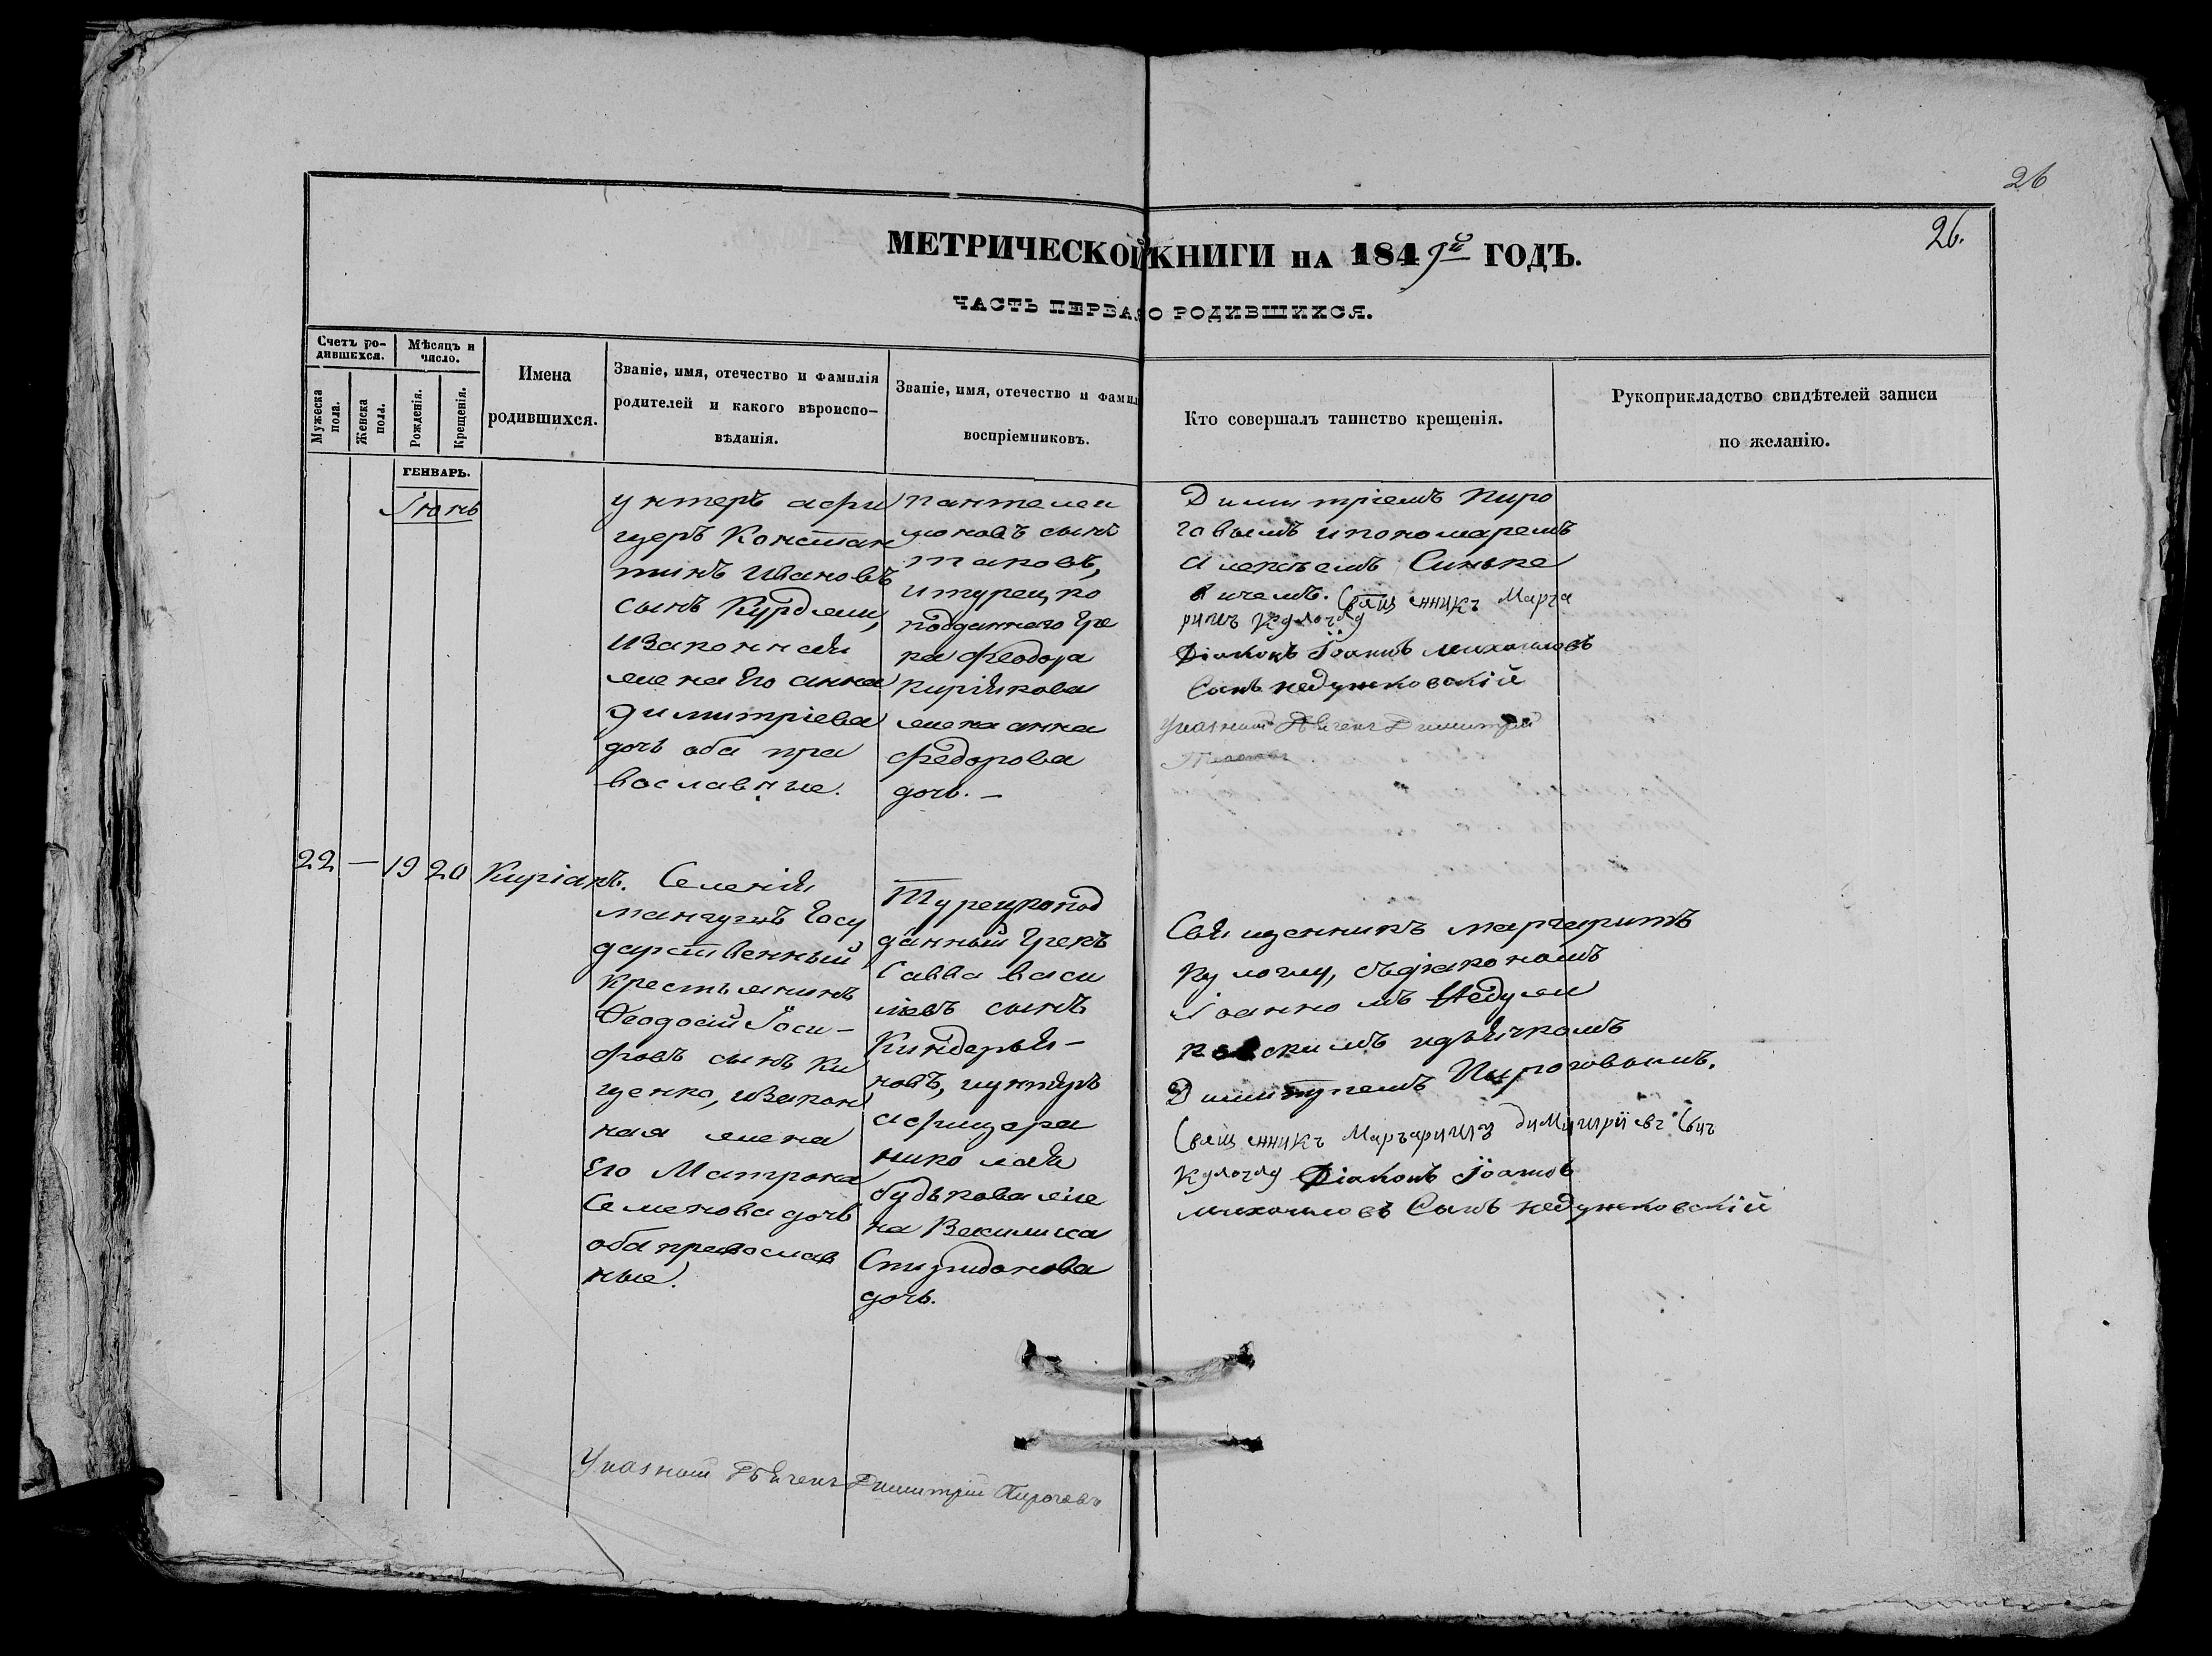 26
26.
МЕТРИЧЕСКОЙ КНИГИ НА 1849й ГОДЪ.
ЧАСТЬ ПЕРВАЯ О РОДИВШИХСЯ.
Счетъ родившихся.
Мужеска пола.
Женска пола.
Мѣсяцъ и число.
Рожденія.
Крещенія.
Имена
родившихся.
Званіе, имя, отечество и фамилія
родителей и какого вѣроиспо-
вѣданія.
Званіе, имя, отечество и фамил
воспріемниковъ.
Кто совершалъ таинство крещенія.
Рукоприкладство свидѣтелей записи
по желанію.
ГЕНВАРЬ.
Іюнь
унтеръ афи
церъ Констан
тинъ Ивановъ
сынъ Курдели,
изаконная
жена Его анна
Димитріева
дочь оба пра
вославные.
пантелеи
моновъ сынъ
таковъ,
итурецко
подданнаго Гре
ка Феодора
Кирiякова
жена анна
Федорова
дочь. —
Димитріемъ Пиро
говымъ ипономаремъ
Алексѣемъ Синьке
вичемъ. Священникъ Марга
ритъ Кулоглу
Діаконъ Іоаннъ Михаиловъ
Сынъ недужковскій
Указный Дьячекъ Димитрій
22 — 19 20 Киріакъ.
Селенія
мангушъ Госу
дарственный
крестьянинъ
Феодосій Іоси-
фовъ сынъ Ки
ценко, изакон
ная жена
Его Матрона
Семенова дочь
оба православ
ные.
Турецкопод
данный Грекъ
Савва васи
ліевъ сынъ
Киндерья-
новъ, иунтеръ
афицера
николая
будькова же
на Василиса
Спиридонова
дочь.
Священникъ маргаритъ
Кулоглу, съдіакономъ
Іоанномъ Недуж
ковскимъ идьячкомъ
Димитріемъ Пироговымъ.
Священникъ Маргаритъ Димитріевъ Сынъ
Кулоглу Діаконъ Іоаннъ
михаиловъ Сынъ недужковскій
Указный Дьячекъ Димитрій Пироговъ